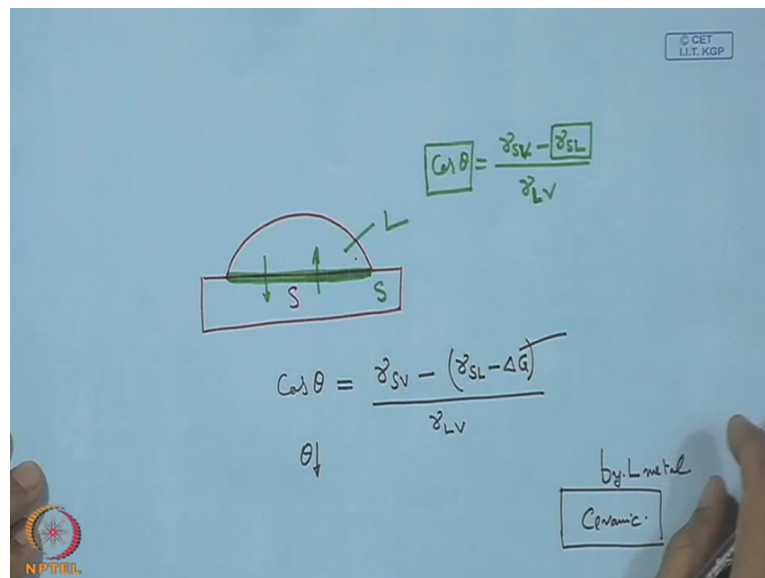 © CET
I.I.T. KGP
Cos θ = γSV − γSL
γLV
L
S
S
Cos θ = γSV − (γSL − ΔG)
γLV
θ↓
by L metal
Ceramic.
NPTEL